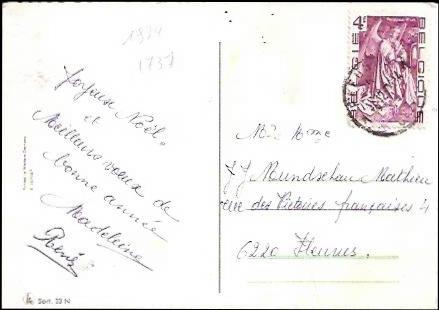 1974
1737
Joyeux Noël
et
Meilleurs voeux de
bonne année
Madeleine
René
4F
BELGIE BELGIQUE
Mr Mme
JJ Mundschau Mathieu
rue des Victoires françaises 4
6220 Fleurus.
Sort. 23 N